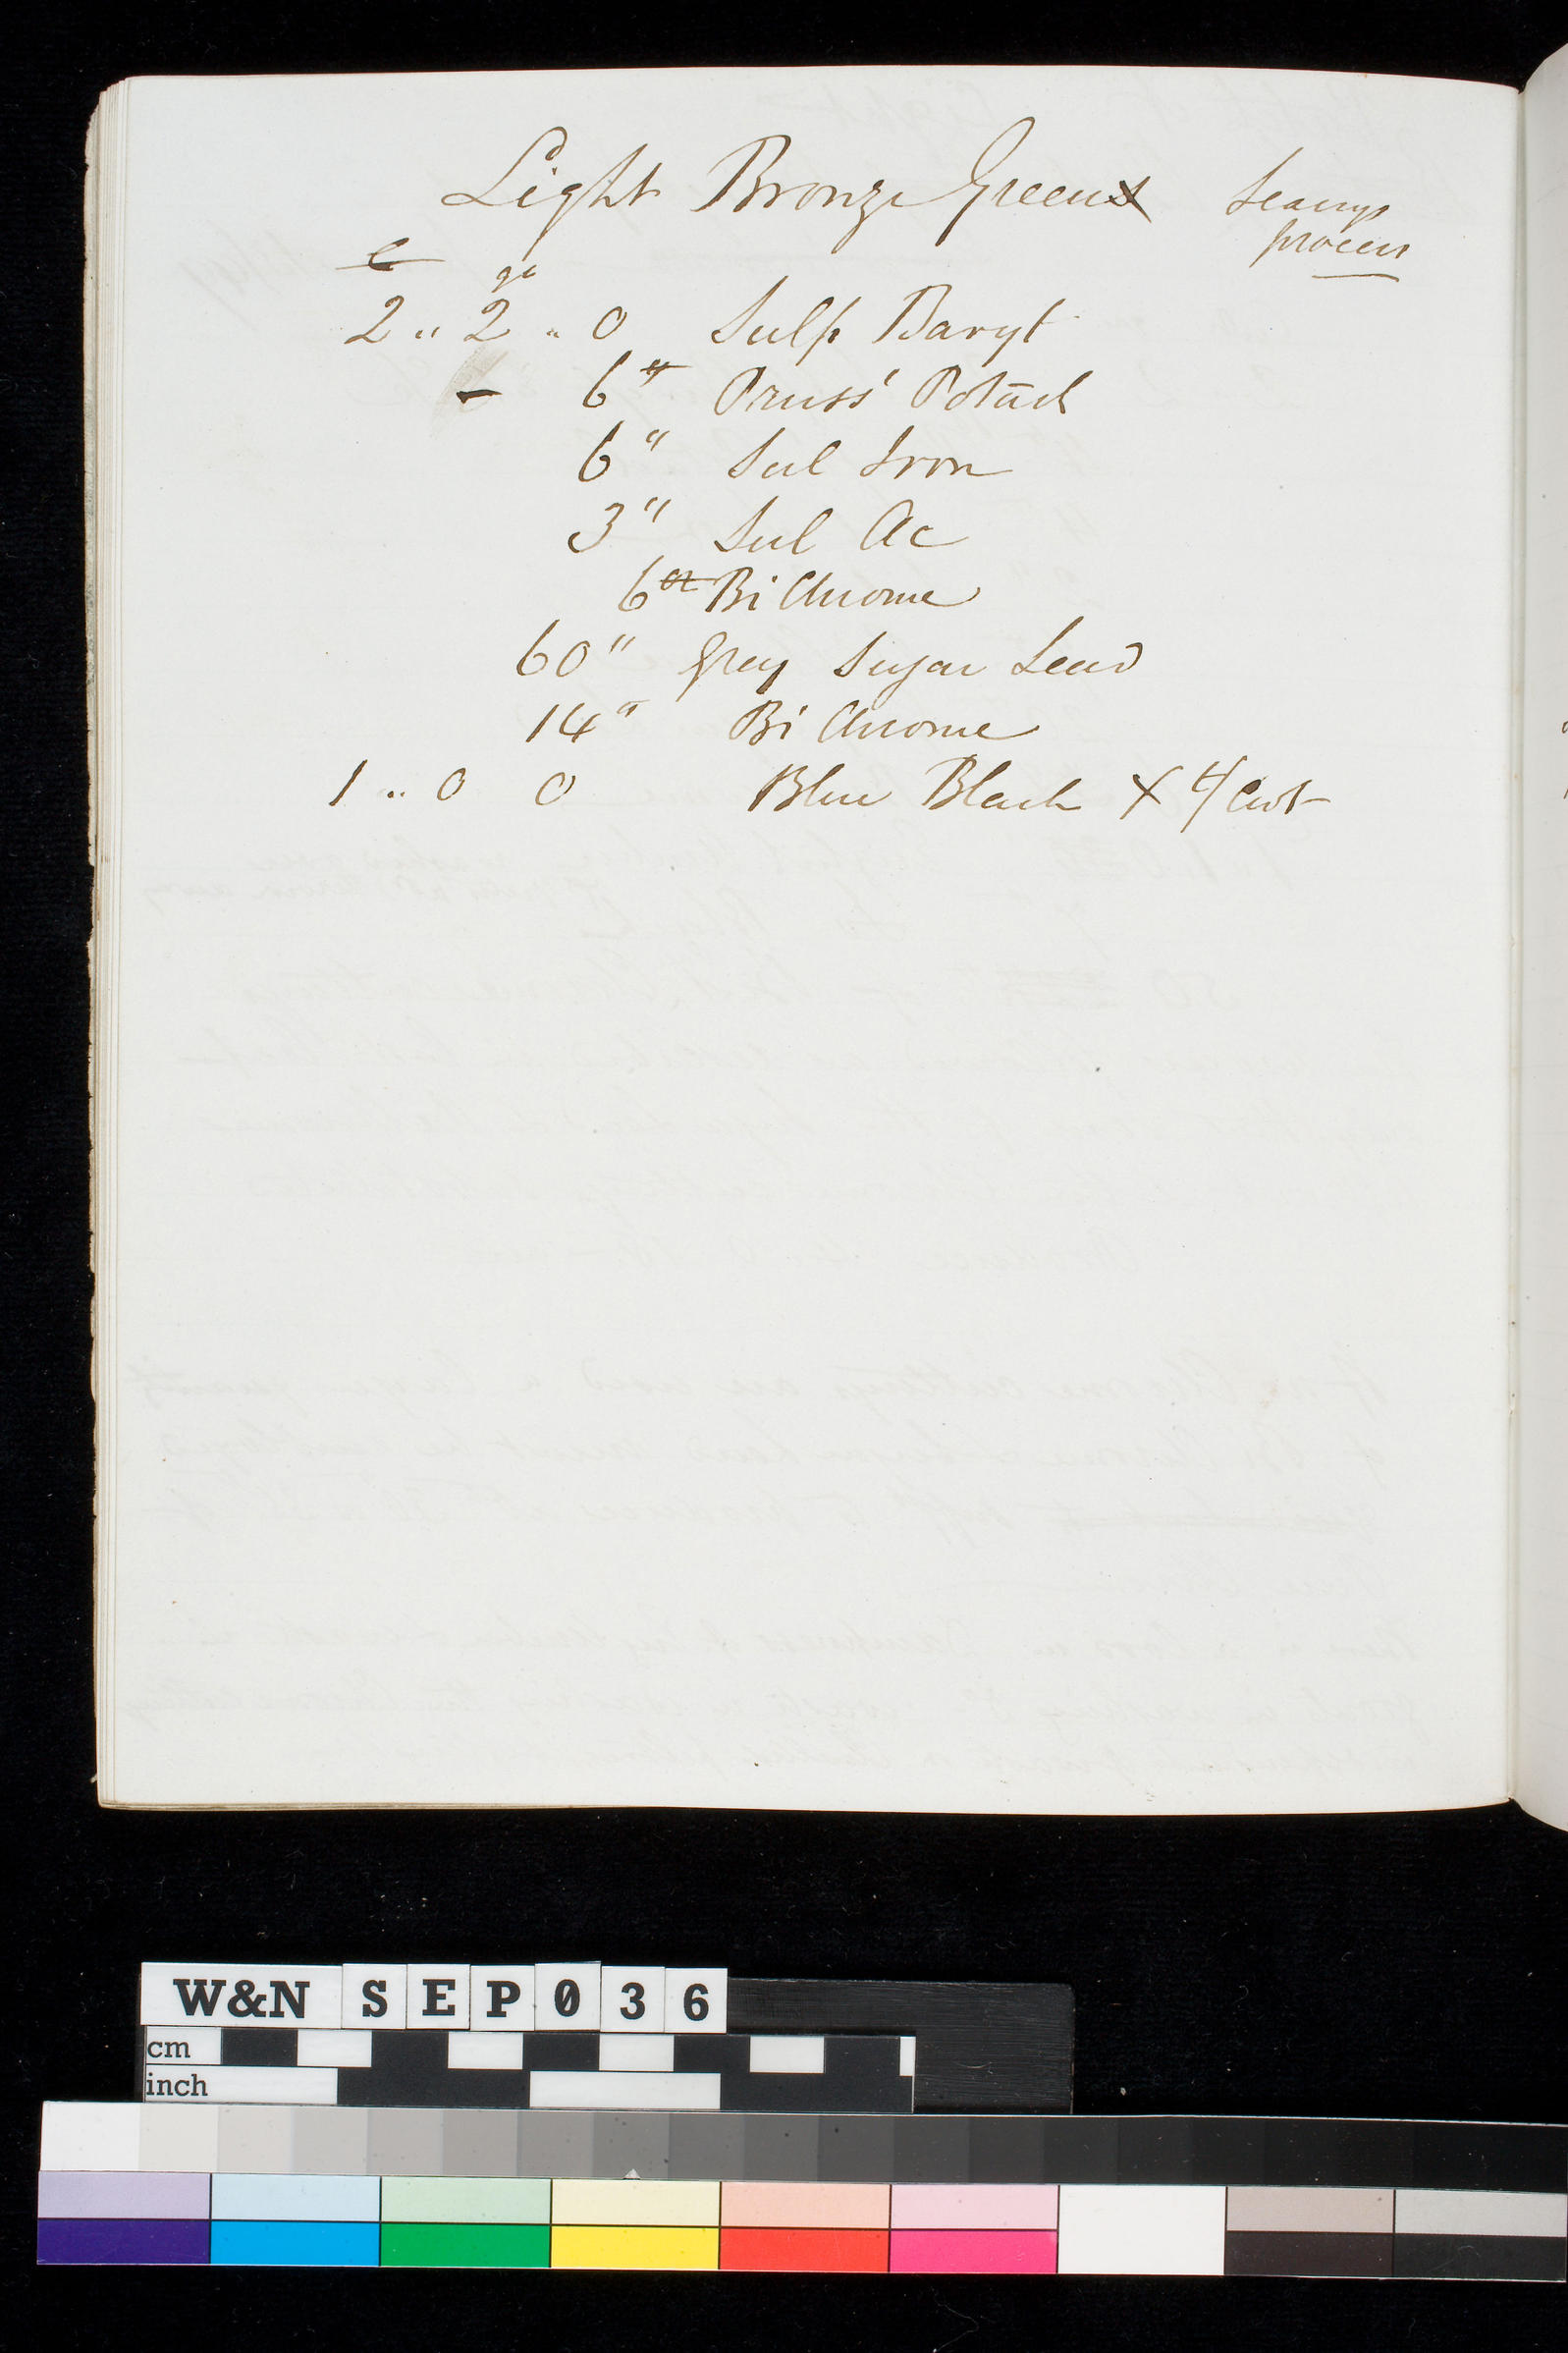 Light Bronze Green
process
c qr
2 " 2 " 0 Sulp Baryt
- 6 " Pruss' Potash
6 " Sul Iron
3 " Sul Ac
6 oz Bi Chrome
60 " Grey Sugar Lead
14 " Bi Chrome
1 .. 0 0 Blue Black X 4/ Cwt
W&N SEP036
cm
inch